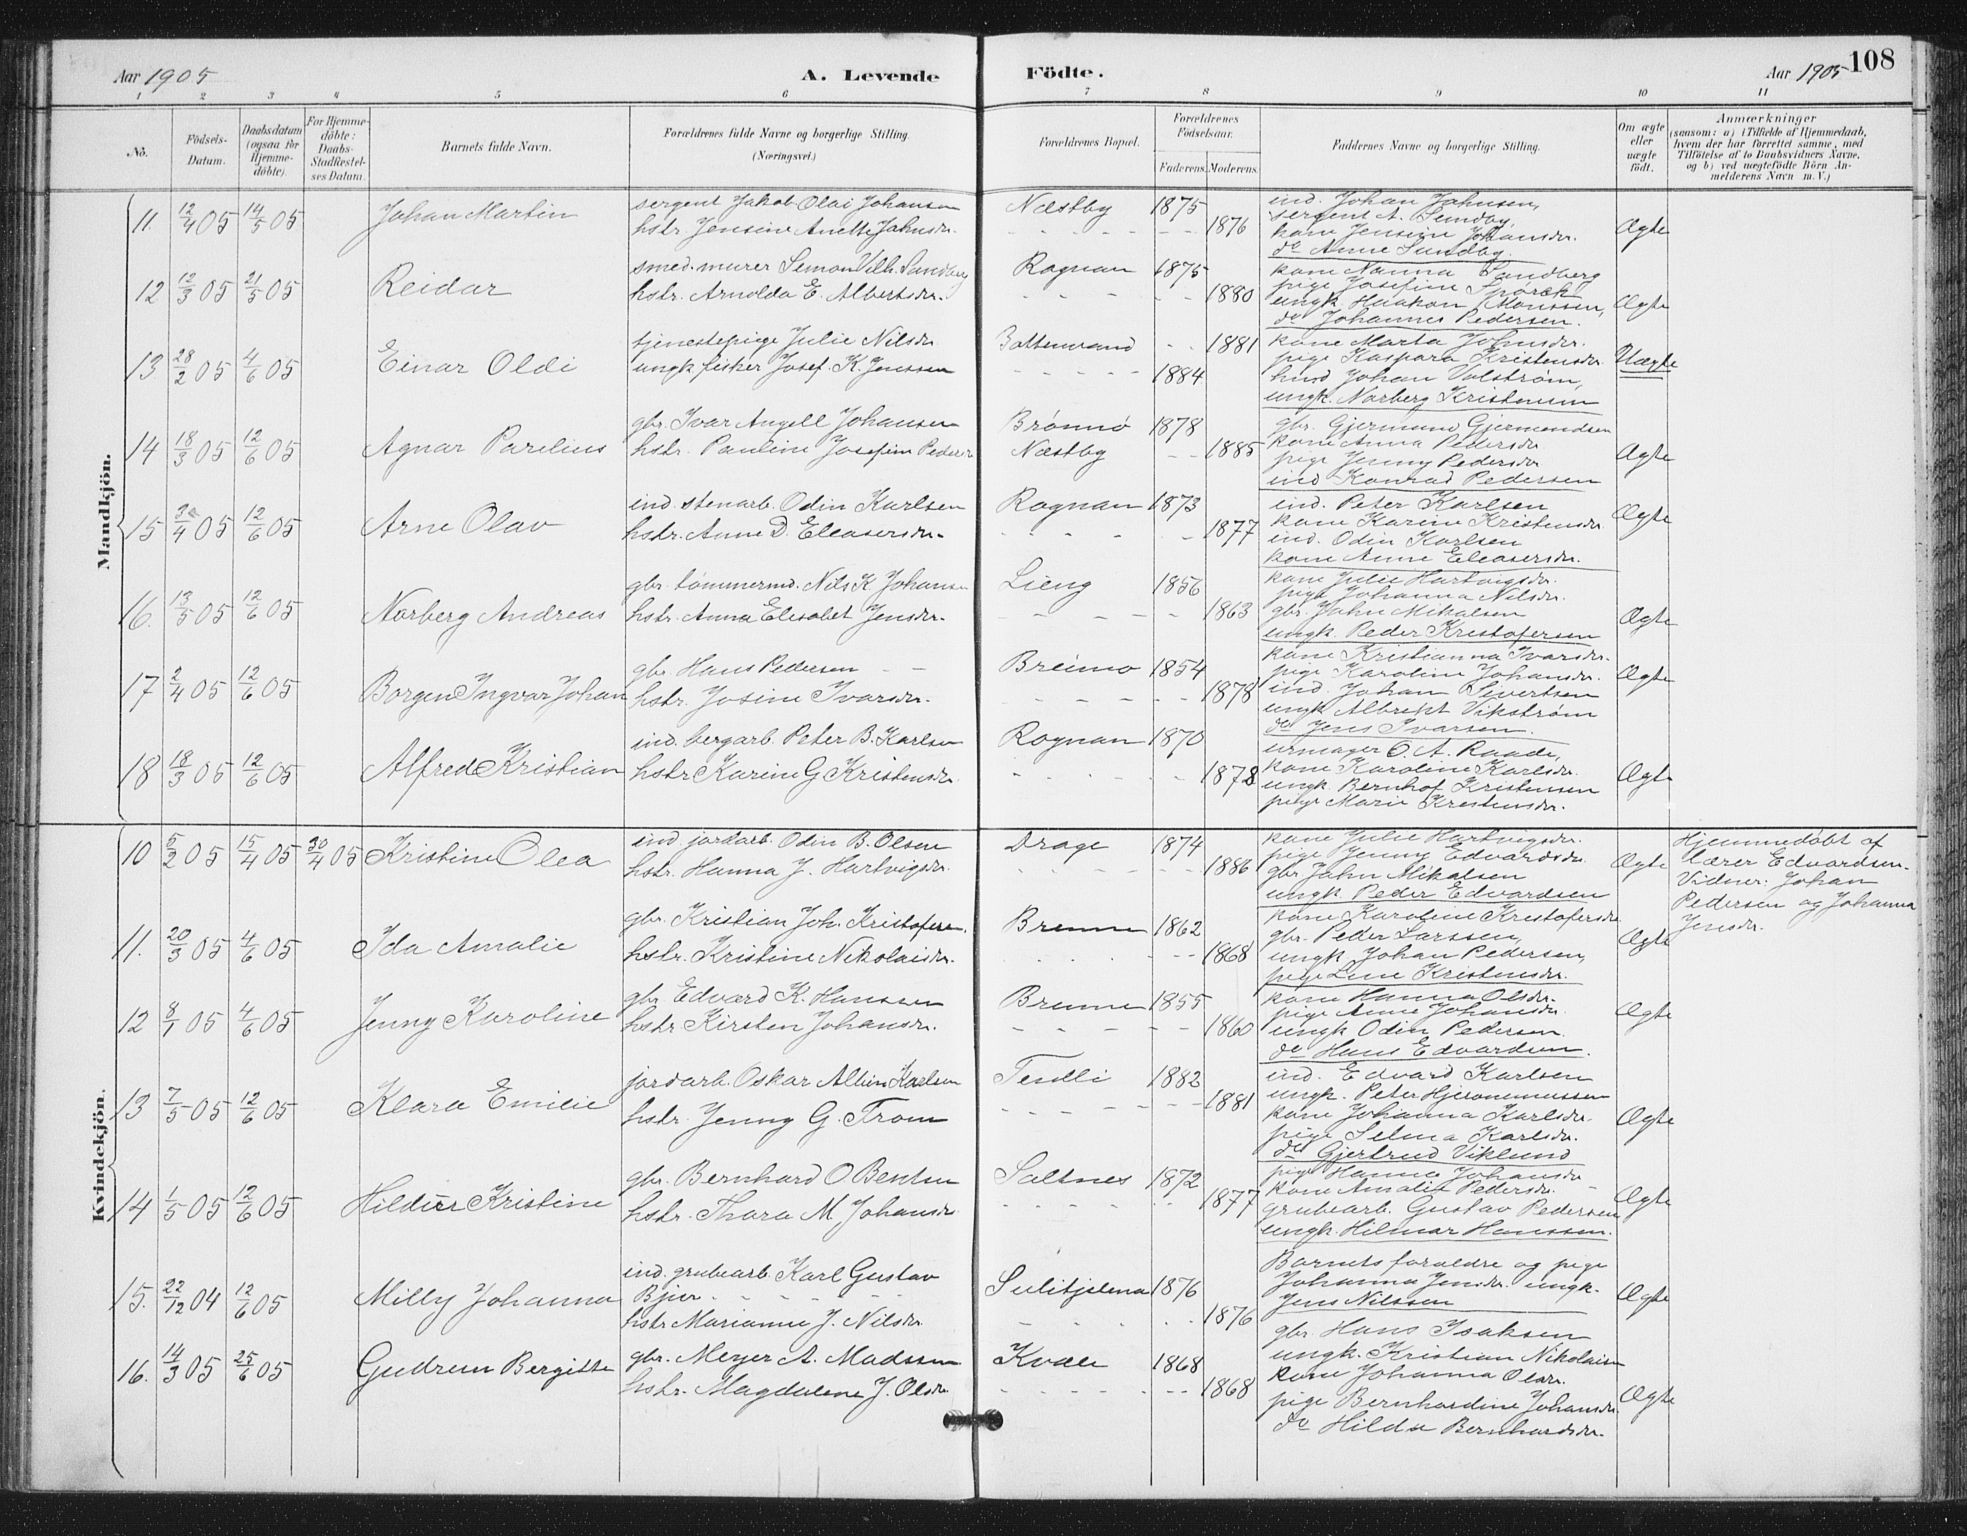 Aar 1905
A. Levende
Födte.
Aar 1905
108
1 2 3 4 5 6 7 8 9 10 11
No.
Födsels-Datum.
Daabsdatum (ogsaa for Hjemme-döbte).
For Hjemme-döbte: Daabs-Stadfæstel-ses Datum.
Barnets fulde Navn.
Forældrenes fulde Navne og borgerlige Stilling. (Næringsvei.)
Forældrenes Bopæl.
Forældrenes Födselsaar.
Faderens. Moderens.
Faddernes Navne og borgerlige Stilling.
Om ægte eller uægte födt.
Anmærkninger
(saasom: a) i Tilfælde af Hjemmedaab, hvem der har forrettet samme, med Tilföielse af to Daabsvidners Navne, og b) ved uægtefödte Börn An-melderens Navn m. V.)
Mandkjön.
11. 12/4 05 14/5 05 Johan Martin
sergent Jakob Olai Johansen
hstr. Jensine Anette Jahnsdr.
Næstby 1875
1876
ind. Johan Jahnsen,
sergent A. Sundby,
kone Jensine Johansdr.
do Anne Sundby.
Ægte
12 12/3 05 21/5 05 Reidar
smed. murer Simon Vilh. Sandberg
hstr. Arnolda E. Albertsdr.
Rognan 1875
1880
kone Nanna Sandberg
pige Josefine Spörck
ungk Haakon Monssen,
do Johannes Pedersen.
Ægte
13 28/2 05 4/6 05 Einar Oldi
tjenestepige Julie Nilsdr.
ungk fisker Josef. K. Jenssen
Bottenvand 1881
1884
kone Marta Johnsdr.
pige Kaspara Kristensdr.
husd Johan Valström,
ungk. Norberg Kristensen
Uægte
14 18/3 05 12/6 05 Agnar Parelius
gbr. Ivar Angell Johansen
hstr. Pauline Josefine Pedersdr
Brönnö 1878
Næstby 1885
gbr. Gjermund Gjermundsen
kone Anna Pedersdr
pige Jenny Pedersdr
ind Konrad Pedersen
Ægte
15 30/4 05 12/6 05 Arne Olav
ind stenarb. Odin Karlsen
hstr. Anne D. Eleasersdr.
Rognan 1873
1877
ind. Peter Karlsen
kone Karine Kristensdr.
ind. Odin Karlsen
kone Anne Eleasersdr.
Ægte
16. 13/5 05 12/6 05 Norberg Andreas
gbr. tömmermd. Nils K Johansen
hstr. Anna Elisabet Jensdr.
Lieng 1856
1863
kone Julie Hartvigsdr.
pige Johanna Nilsdr.
gbr. Jahn Mikalsen
ungk. Peder Kristofersen
Ægte
17 2/4 05 12/6 05 Borgen Ingvar Johan
gbr. Hans Pedersen
hstr. Josine Ivarsdr.
Breimo 1854
1878
kone Kristianna Ivarsdr.
pige Karoline Johansdr.
ind. Johan Sivertsen
ungk Albrekt Vikström
do Jens Ivarsen.
Ægte
18 18/3 05 12/6 05 Alfred Kristian
ind. bergarb. Peter B. Karlsen
hstr Karine G Kristensdr.
Rognan 1870
1878
urmager O. A. Raade,
kone Karoline Karlsdr.
ungk. Bernhof Kristensen
pige Marie Kristensdr.
Ægte
Kvindekjön.
10 5/2 05 15/4 05 30/4 05 Kristine Olea
ind jordarb. Odin B. Olsen
hstr. Hanna J. Hartvigsdr.
Drage 1874
1886
kone Julie Hartvigsdr.
pige Jenny Edvardsdr.
gbr Jahn Mikalsen
ungk. Peder Edvardsen
Ægte
Hjemmedöbt af
lærer Edvardsen.
Vidner: Johan
Pedersen og Johanna
Jensdr.
11. 20/3 05 4/6 05 Ida Amalie
gbr. Kristian Joh. Kristofersen.
hstr. Kristine Nikolaisdr.
Brenne 1862
1868
kone Karoline Kristofersdr
gbr. Peder Larssen,
ungk Johan Pedersen,
pige Line Kristensdr.
Ægte
12 8/1 05 4/6 05 Jenny Karoline
gbr Edvard K. Hanssen
hstr Kirsten Johansdr.
Brenne 1855
1860
kone Hanna Olsdr.
pige Anne Johansdr.
ungk Odin Pedersen.
do Hans Edvardsen.
Ægte
13 7/5 05 12/6 05 Klara Emilie
jordarb. Oskar Albin Karlsen
hstr. Jenny G. Trom
Tendli 1882
1881
ind. Edvard Karlsen
ungk. Peter Hjeronemussen
kone Johanna Karlsdr.
pige Selma Karlsdr.
do Gjertrud Viklund
Ægte
14 1/5 05 12/6 05 Hildur Kristine
gbr. Bernhard O Bentsen
hstr. Thora M. Johansdr.
Saltnes 1872
1877
pige Hanna Johansdr
kone Amalie Pedersdr.
grubearb. Gustav Pedersen
ungk. Hilmar Hanssen.
Ægte
15. 22/12 04 12/6 05 Milly Johanna
ind. grubearb. Karl Gustav
Bjur
hstr Marianne J. Nilsdr.
Sulitjelma 1876
1876
Barnets foraldre og pige
Johanna Jensdr. ungk.
Jens Nilssen
Ægte
16. 14/3 05 25/6 05 Gudrun Bergitte
gbr. Meyer A. Madssen
hstr. Magdalene J. Olsdr
Kvæle 1868
1868
gbr. Hans Isaksen
ungk. Kristian Nikolaisen
kone Johanna Olsdr.
pige Bernhardine Johansdr.
do Hilda Bernhardsdr.
Ægte